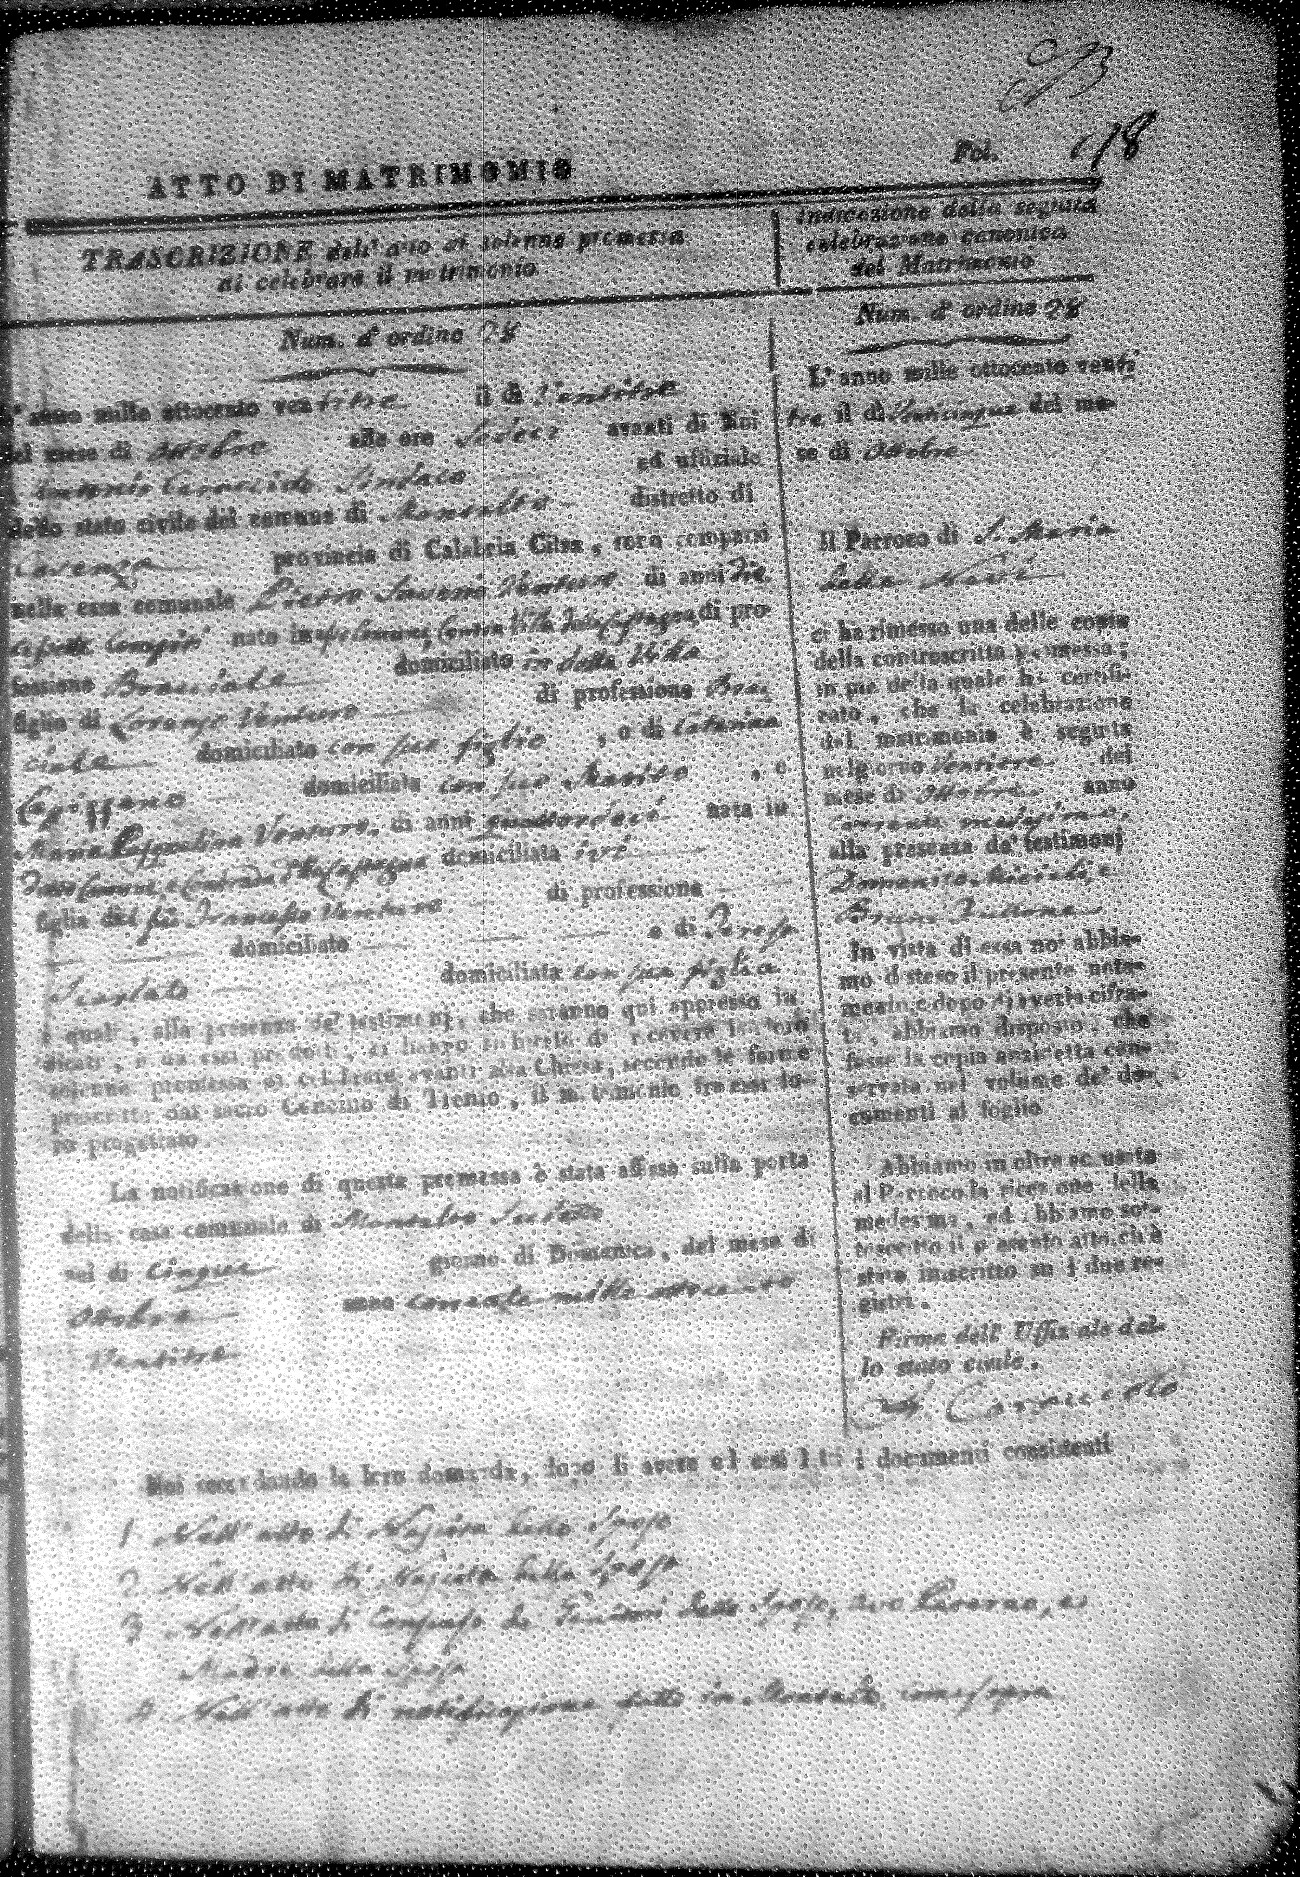 Fol. 18
ATTO DI MATRIMONIO
TRASCRIZIONE dell' atto di solenne promessa
di celebrare il matrimonio
Num. d' ordine 28
L' anno mille ottocento ventitre il dì Ventitre
del mese di Ottobre alle ore Sedeci avanti di Noi
Antonio Caracciolo Sindaco ed uffiziale
dello stato civile del comune di Montalto distretto di
Cosenza provincia di Calabria Citra, sono comparsi
nella casa comunale Pietro Saverio Venturo di anni die
cisette compiti nato in di pro-
fessione Bracciale domiciliato in detta Villa
figlio di Lorenzo Venturo di professione Brac
ciale domiciliato con suo figlio , e di Catarina
domiciliata con suo Marito , e
Maria Venturo, di anni quattordeci nata in
domiciliata ivi
figlia del fù Francesco Venturo di professione
domiciliato e di Teresa
Scarlato domiciliata con sua figlia
i quali, alla presenza de' testimonj, che saranno qui appresso in-
dicati, e da essi prodotti, ci hanno richiesto di ricevere la loro
solenne promessa di celebrare avanti alla Chiesa, secondo le forme
prescritte dal sacro Concilio di Trento, il matrimonio tra essi lo-
ro progettato
La notificazione di questa promessa è stata affissa sulla porta
della casa comunale di Montalto
nel dì Cinque giorno di Domenica, del mese di
Ottobre anno corrente mille ottocento
Ventitre
Indicazione della seguita
celebrazione canonica
del Matrimonio
Num. d' ordine 28
L' anno mille ottocento venti
tre il dì Venticinque del me-
se di Ottobre
Il Parroco di S. Maria
della
ci ha rimesso una delle copie
della controscritta promessa;
in piè della quale ha certifi-
cato, che la celebrazione
del matrimonio è seguita
nel giorno del
mese di Ottobre anno
corrente medesimo,
alla presenza de' testimonj
Domenico e
Bruno
In vista di essa noi abbia-
mo disteso il presente nota-
mento, e dopo di averla cifra-
ta, abbiamo disposto, che
fosse la copia anzidetta con-
servata nel volume de' do-
cumenti al foglio
Abbiamo in oltre accusata
al Parroco la ricezione della
medesima, ed abbiamo sot-
toscritto il presente atto, ch'è
stato inscritto su i due re-
gistri.
Firma dell' Uffiziale del-
lo stato civile.
A. Caracciolo
Noi secondando la loro domanda, dopo di avere ad essi letti i documenti consistenti
1 Nell' atto di Nascita dello Sposo
2 Nell' atto di Nascita della Sposa
3 Nell' atto di Consenso de' Genitori dello Sposo,
Madre della Sposa
4. Nell' atto di notificazione fatta in Montalto come sopra